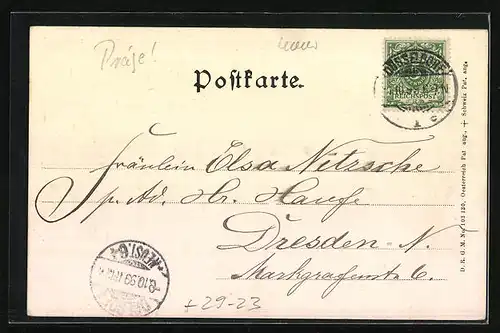 Präge!
Postkarte.
REICHSPOST
Fräulein Elsa Nitzsche
p. Ad. Hr. Haufe
Dresden-N.
Markgrafenstr. 6.
D. R. G. M. No. 103 120, Oesterreich Pat. ang. + Schweiz Pat. ang.
8.10.99
+ 29-23